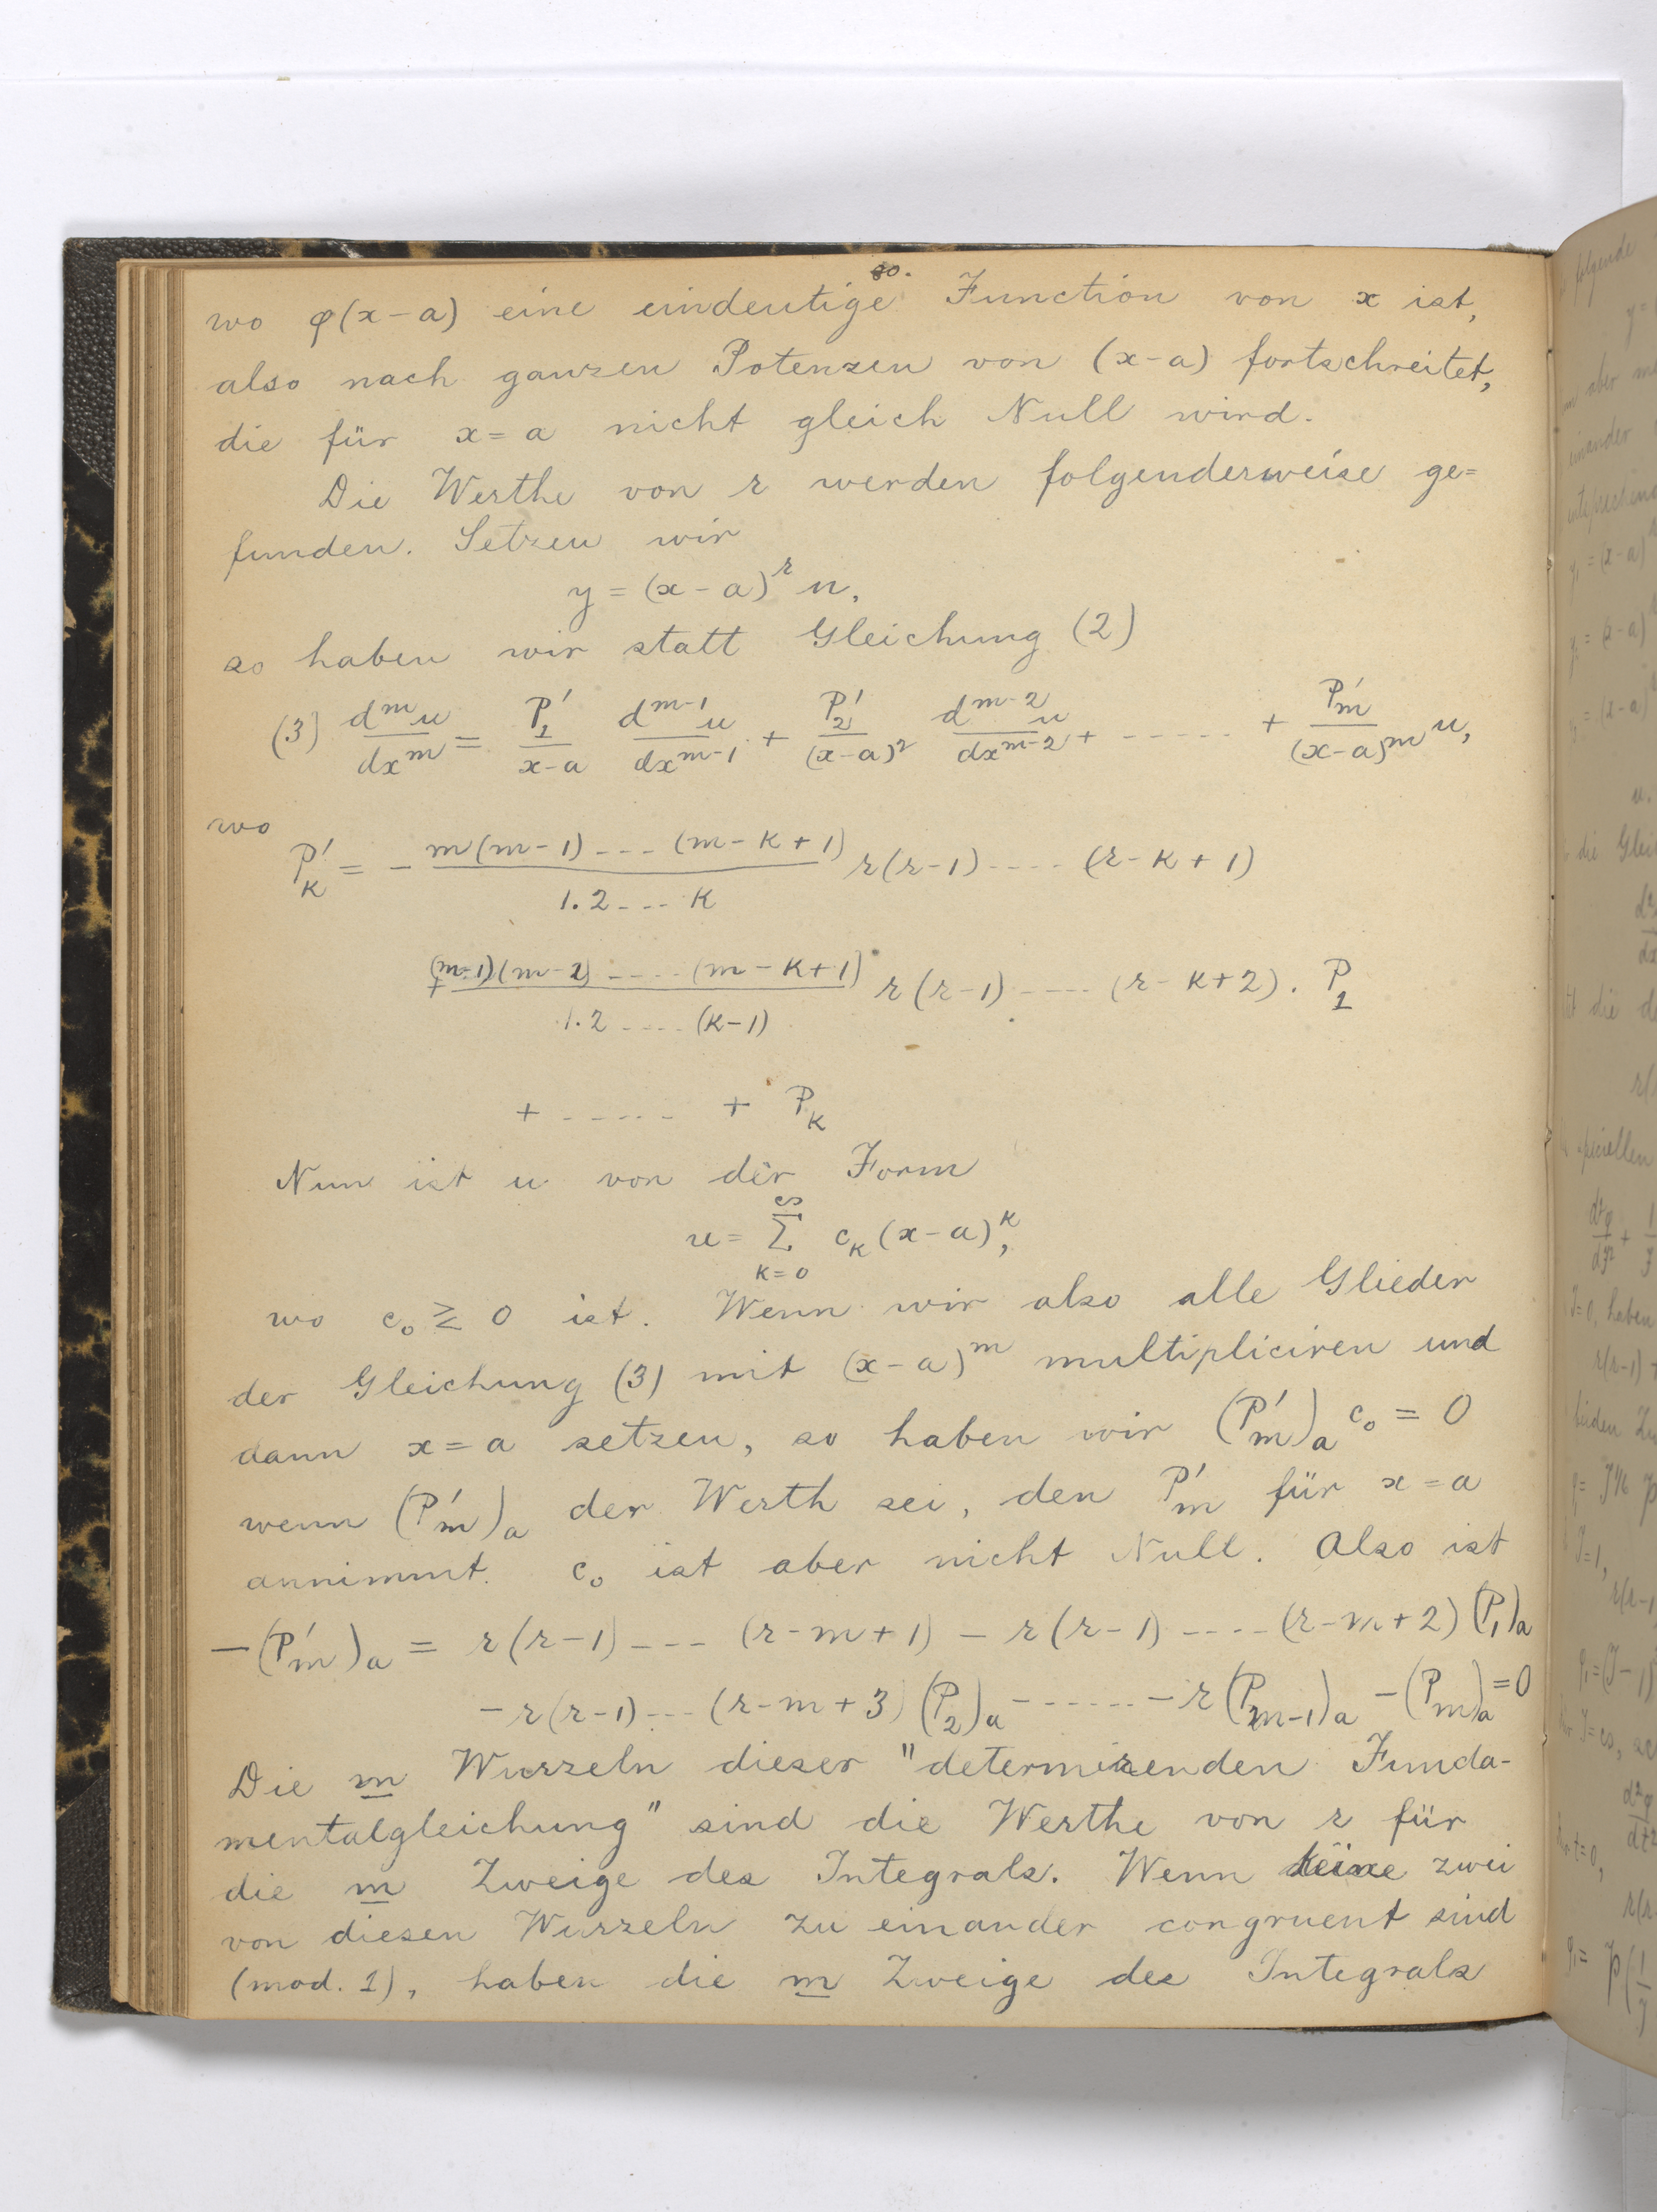 80.
wo φ(x-a) eine eindeutige Function von x ist,
also nach ganzen Potenzen von (x-a) fortschreitet,
die für x=a nicht gleich Null wird.
Die Werthe von r werden folgenderweise ge=
funden. Setzen wir
y = (x-a)^r u,
so haben wir statt Gleichung (2)
(3) d^m u / dx^m = P'_1 / (x-a) d^{m-1} u / dx^{m-1} + P'_2 / (x-a)^2 d^{m-2} u / dx^{m-2} + ...... + P'_m / (x-a)^m u,
wo
P'_k = - m(m-1)---(m-k+1) / 1.2---k r(r-1)----(r-k+1)
+ (m-1)(m-2)----(m-k+1) / 1.2----(k-1) r(r-1)----(r-k+2). P_1
+ ------ + P_k
Nun ist u von der Form
u = ∑_{k=0}^{∞} c_k (x-a)^k,
wo c_0 ≷ 0 ist. Wenn wir also alle Glieder
der Gleichung (3) mit (x-a)^m multipliciren und
dann x=a setzen, so haben wir (P'_m)_a c_0 = 0
wenn (P'_m)_a der Werth sei, den P'_m für x=a
annimmt. c_0 ist aber nicht Null. Also ist
-(P'_m)_a = r(r-1)---(r-m+1) - r(r-1)----(r-m+2)(P_1)_a
- r(r-1)---(r-m+3)(P_2)_a ------ - r(P_{m-1})_a - (P_m)_a = 0
Die m Wurzeln dieser "determinirenden Funda-
mentalgleichung" sind die Werthe von r für
die m Zweige des Integrals. Wenn keine zwei
von diesen Wurzeln zu einander congruent sind
(mod. 1), haben die m Zweige des Integrals